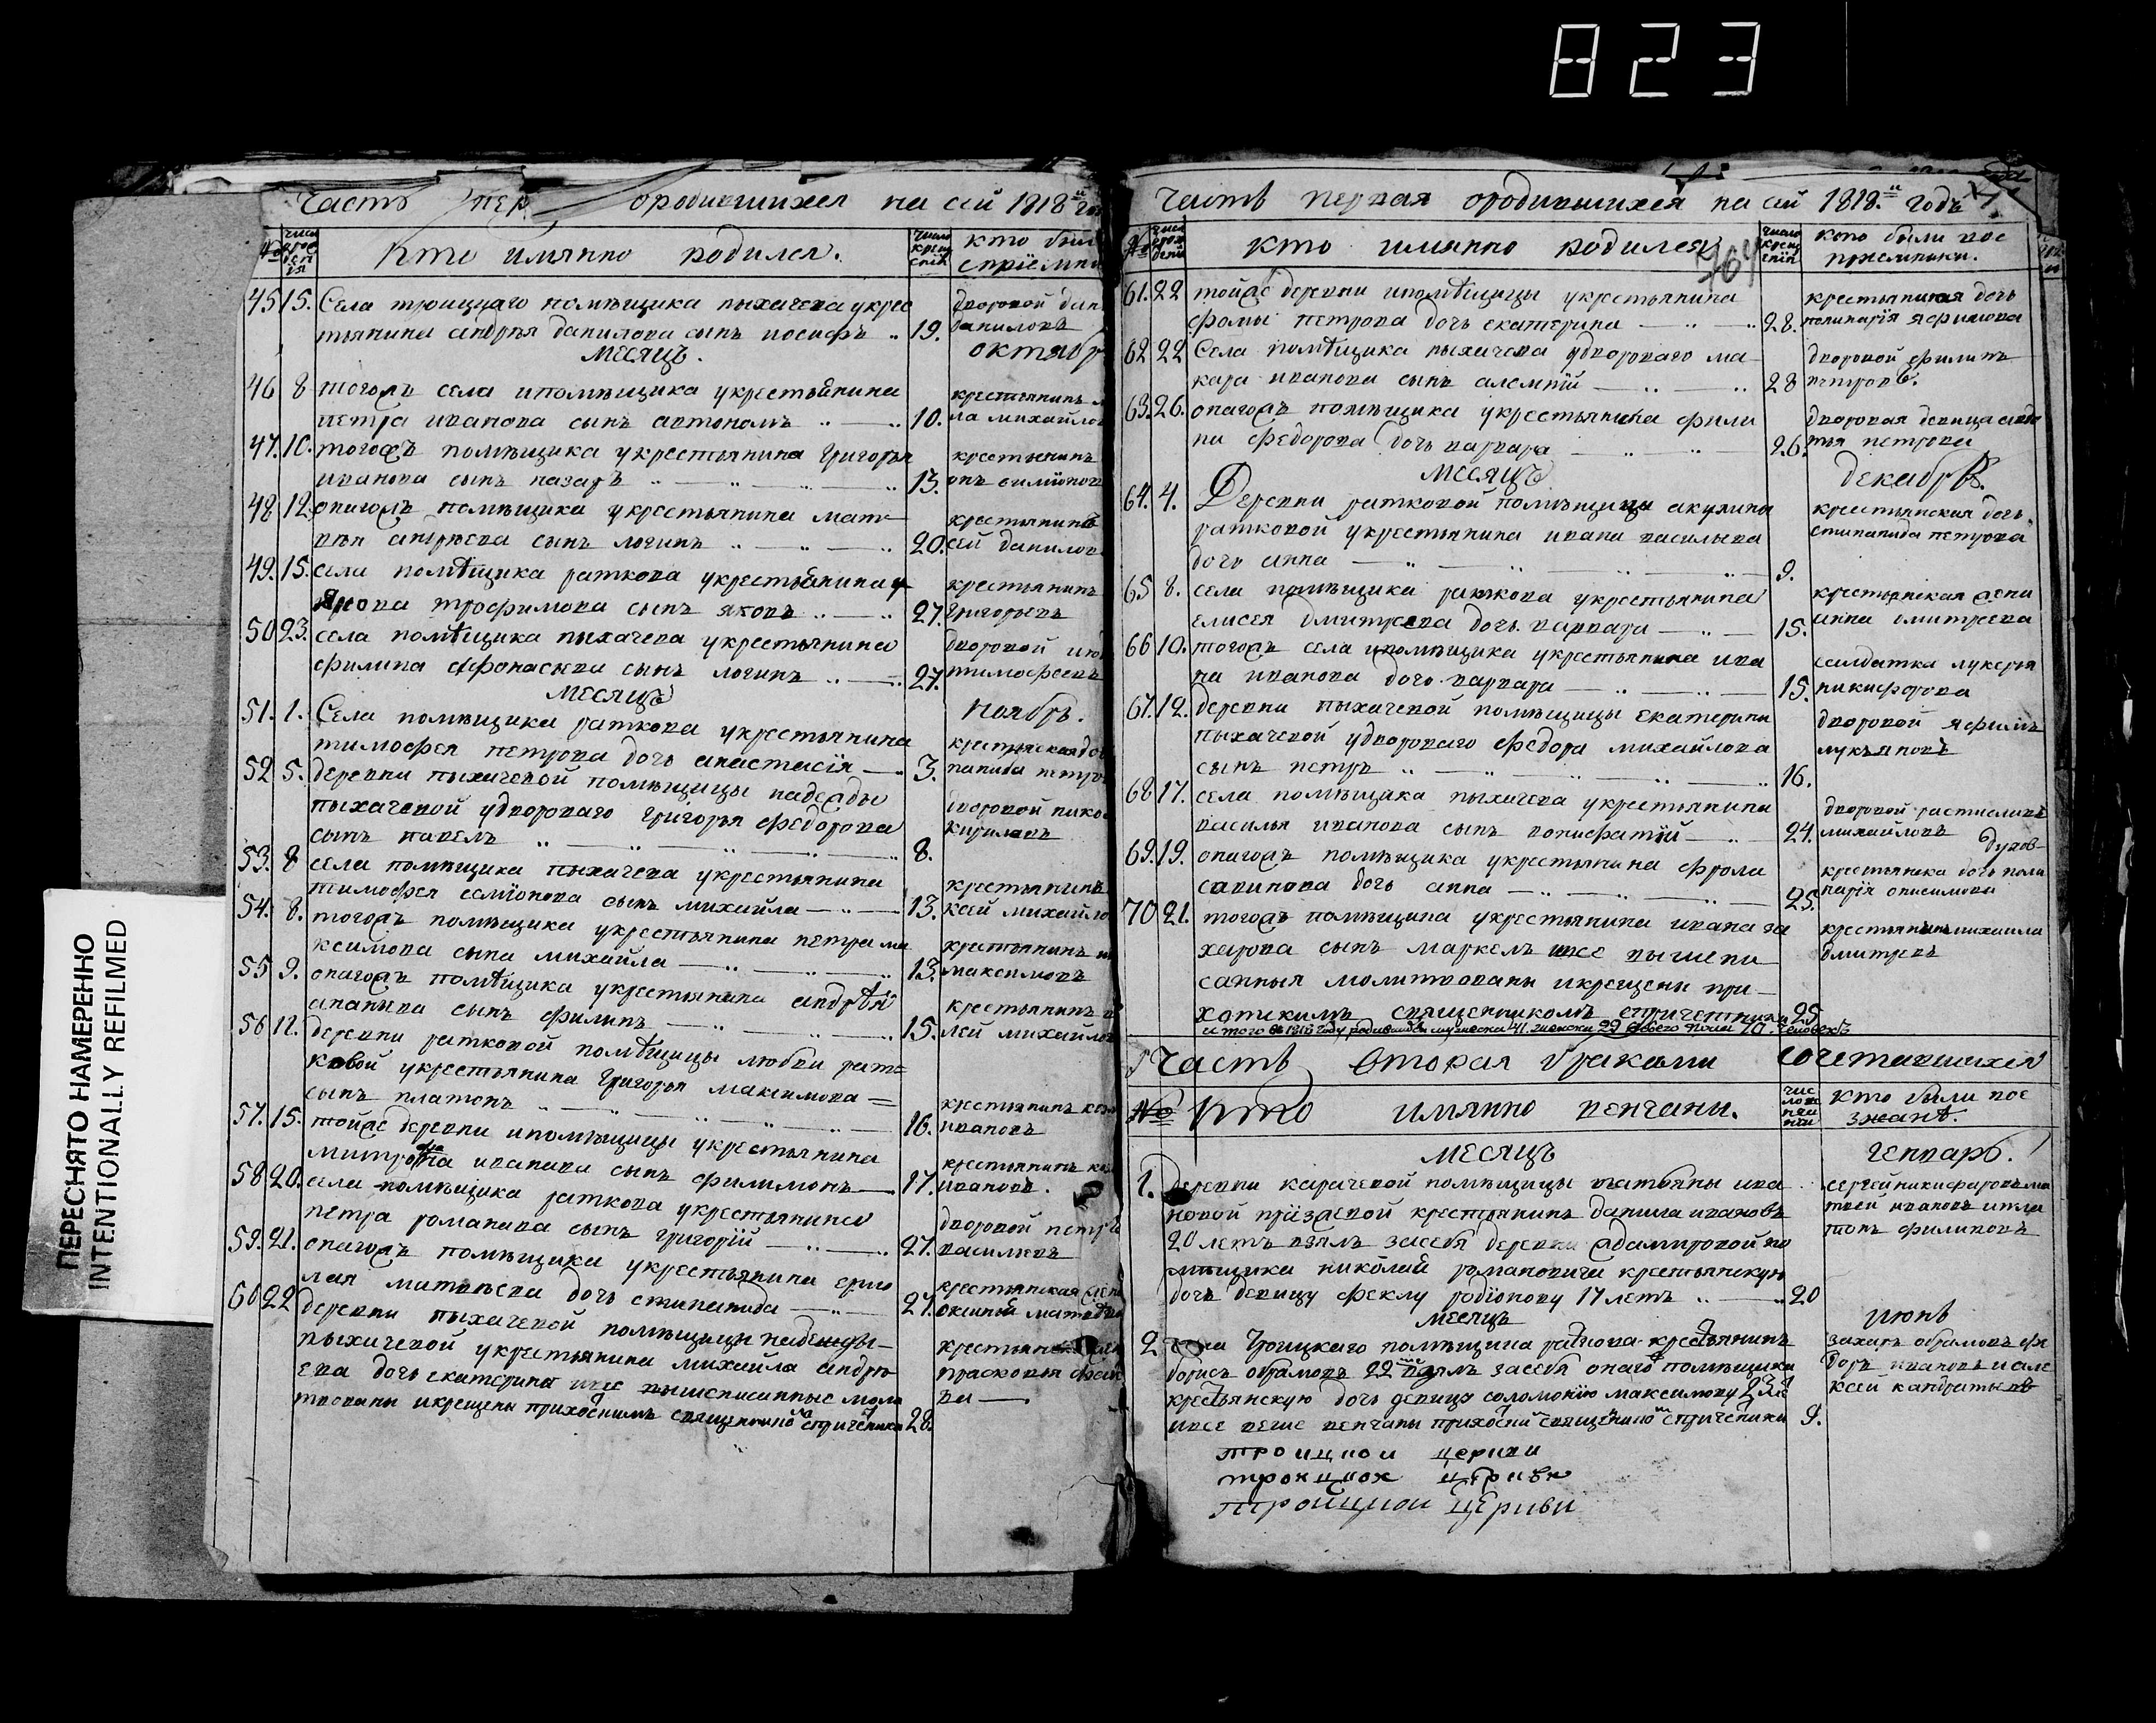 823
ПЕРЕСНЯТО НАМЕРЕННО
INTENTIONALLY REFILMED
Часть пер ородившихся на сей 1818й го
№ число рождения Кто имянно родился. число крещения кто были
сприемни
45 15. Села троицкаго помѣщика пыхачева укрес
тьянина андрея данилова сынъ иосифъ 19.
дворовой дан
даниловъ
месяцъ. октябр
46 8 тогожъ села ипомѣщика укрестьянина
петра иванова сынъ автономъ 10.
крестьянинъ
ла михайло
47. 10. тогожъ помѣщика укрестьянина григорья
иванова сынъ назаръ 13.
крестьянинъ
онъ симионов
48 12. онагожъ помѣщика укрестьянина мат
вѣя андрѣева сынъ логинъ 20.
крестьянинъ
сей данилов
49. 15. села помѣщика раткова укрестьянина
трофимова сынъ яковъ 27.
крестьянинъ
григорьевъ
50 23. села помѣщика пыхачева укрестьянина
филипа афонасьева сынъ логинъ 27.
дворовой
тимофеевъ
месяцъ ноябрь.
51. 1. Села помѣщика раткова укрестьянина
тимофея петрова дочь анастасія 3.
крестьянская до
панида петро
52 5. деревни пыхачевой помѣщицы надежды
пыхачевой удвороваго григорья федорова
сынъ павелъ 8.
дворовой нико
кириловъ
53. 8 села помѣщика пыхачева укрестьянина
тимофея семіонова сынъ михайла 13.
крестьянинъ
ксей михайло
54. 8. тогожъ помѣщика укрестьянина петра ма
ксимова сына михайла 13.
крестьянинъ
максимовъ
55 9. онагожъ помѣщика укрестьянина андрѣй
ананьева сынъ филипъ 15.
крестьянинъ
лей михайлов
56 12. деревни ратковой помѣщицы любви рат
ковой укрестьянина григорья максимова
сынъ платонъ 16.
крестьянинъ
ивановъ
57. 15. тойже деревни ипомѣщицы укрестьянина
митрофана иванова сынъ филимонъ 17.
крестьянинъ
ивановъ.
58 20. села помѣщика раткова укрестьянина
петра романова сынъ григорій 27.
дворовой петръ
васильевъ
59. 21. онагожъ помѣщика укрестьянина ермо
лая матвѣева дочь стипанида 27.
крестьянская жена
60 22 деревни пыхачевой помѣщицы надежды
пыхачевой укрестьянина михайла андрѣ
ева дочь екатерина ивсе вышеписанные моли
твованы икрещены приходскимъ священникомъ спричетники 28.
прасковья
ва
Часть первая ородившихся на сей 1818.й годъ
164
№ число рождения Кто имянно родился число крещения Кто были вос
приемники.
61. 22 тойже деревни ипомѣщицы укрестьянина
фомы петрова дочь екатерина 28.
крестьянская дочь
62 22 Села помѣщика пыхачева удвороваго ма
кара иванова сынъ алемпій 28
дворовой филипъ
петровъ.
63. 26. онагожъ помѣщика укрестьянина фили
па федорова дочь варвара 26.
дворовая девица авдо
тья петрова
месяцъ декабрь.
64. 4. Деревни ратковой помѣщицы акулины
ратковой укрестьянина ивана васильева
дочь анна 9.
крестьянская дочь
стипанида петрова
65 8. села помѣщика раткова укрестьянина
елисея дмитрева дочь варвара 15.
крестьянская жена
анна дмитрева
66 10. тогожъ села ипомѣщика укрестьянина ива
на иванова дочь варвара 15.
салдатка лукерья
никифорова
67. 12. деревни пыхачевой помѣщицы екатерины
пыхачевой удвороваго федора михайлова
сынъ петръ 16.
дворовой яфимъ
лукьяновъ
68 17. села помѣщика пыхачева укрестьянина
василья иванова сынъ вонифатій 24.
дворовой растиславъ
михайловъ
69. 19. онагожъ помѣщика укрестьянина фрола
савинова дочь анна 25.
крестьянка дочь пела
гия онисимова
70 21. тогожъ помѣщика укрестьянина ивана за
харова сынъ маркелъ ивсе вышепи
санныя молитвованы икрещены при
хотскимъ священникомъ спричетники 25
крестьянинъ михаила
дмитревъ
итого в 1818 году родившихъ мужеска 41. женска 29 обоего пола 70 человекъ
Часть вторая браками сочетавшихся
№ Кто имянно венчаны. число венчания кто были пое
зжанѣ.
месяцъ генварь.
1. деревни карачевой помѣщицы татьяны ива
новой приезжевой крестьянинъ данила ивановъ
20 летъ взялъ засебя деревни адамировой по
мѣщика николай романовича крестьянскую
дочь девицу феклу родіонову 17 летъ 20
сергей никифоровъ ма
твей ивановъ ипла
тонъ филиповъ
месяцъ июнь
2 села троицкаго помѣщика раткова крестьянинъ
борисъ абрамовъ 22 взялъ засебя онаго помѣщика
крестьянскую дочь девицу соломонию максимову 23
ивсе выше венчаны приходскимъ священникомъ спричетники 9.
захаръ абрамовъ фе
доръ ивановъ иале
ксей кандратьевъ
троицкои церкви
троицкох церкви
тройцкои церкви